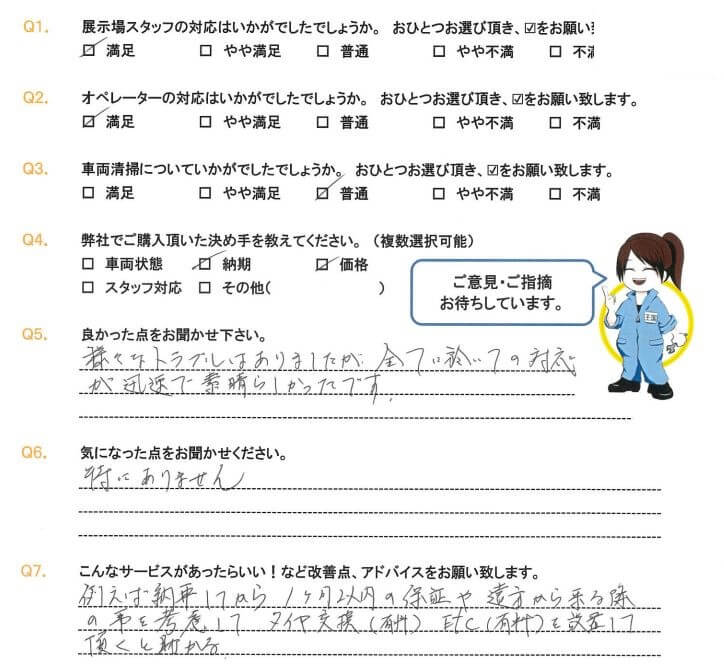 Q1. 展示場スタッフの対応はいかがでしたでしょうか。 おひとつお選び頂き、☑をお願い
☑ 満足 □ やや満足 □ 普通 □ やや不満 □ 不満
Q2. オペレーターの対応はいかがでしたでしょうか。 おひとつお選び頂き、☑をお願い致します。
☑ 満足 □ やや満足 □ 普通 □ やや不満 □ 不満
Q3. 車両清掃についていかがでしたでしょうか。 おひとつお選び頂き、☑をお願い致します。
□ 満足 □ やや満足 ☑ 普通 □ やや不満 □ 不満
Q4. 弊社でご購入頂いた決め手を教えてください。（複数選択可能）
□ 車両状態 ☑ 納期 ☑ 価格
□ スタッフ対応 □ その他( )
ご意見・ご指摘
お待ちしています。
Q5. 良かった点をお聞かせ下さい。
様々なトラブルはありましたが 全てに於いての対応
が迅速で素晴らしかったです。
Q6. 気になった点をお聞かせください。
特にありません
Q7. こんなサービスがあったらいい！など改善点、アドバイスをお願い致します。
例えば納車してから 1ヶ月以内の保証や 遠方から来る際
の事を考慮して タイヤ交換(有料) ETC(有料)を設置して
頂くと助かる。